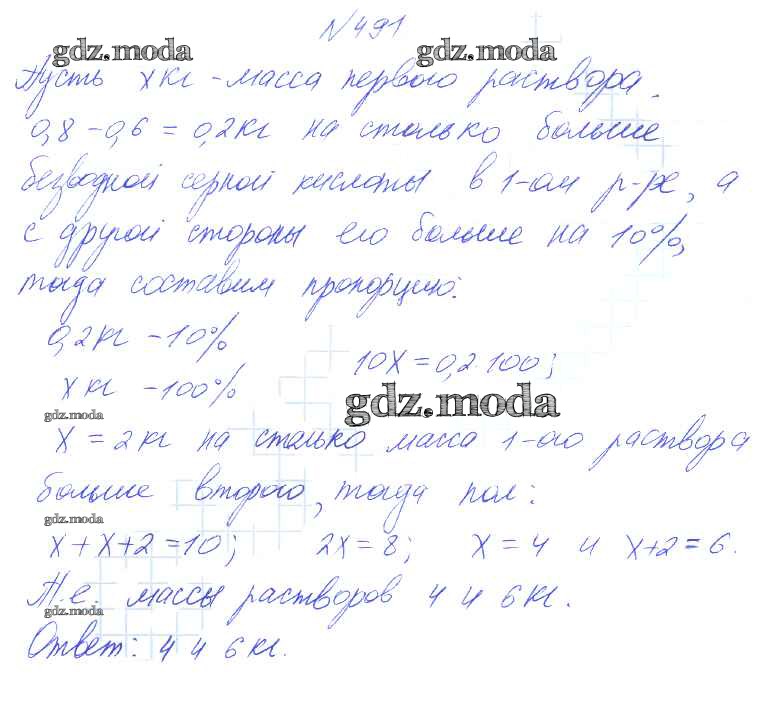 №491
gdz.moda
Пусть x кг - масса первого раствора.
0,8 - 0,6 = 0,2 кг на столько больше
безводной серной кислоты в 1-ом р-ре, а
с другой стороны его больше на 10%,
тогда составим пропорцию:
0,2 кг - 10%
x кг - 100%
10x = 0,2·100;
gdz.moda
gdz.moda
x = 2 кг на столько масса 1-ого раствора
больше второго, тогда пол:
gdz.moda
x + x + 2 = 10; 2x = 8; x = 4 и x+2 = 6.
Т.е. массы растворов 4 и 6 кг.
gdz.moda
Ответ: 4 и 6 кг.